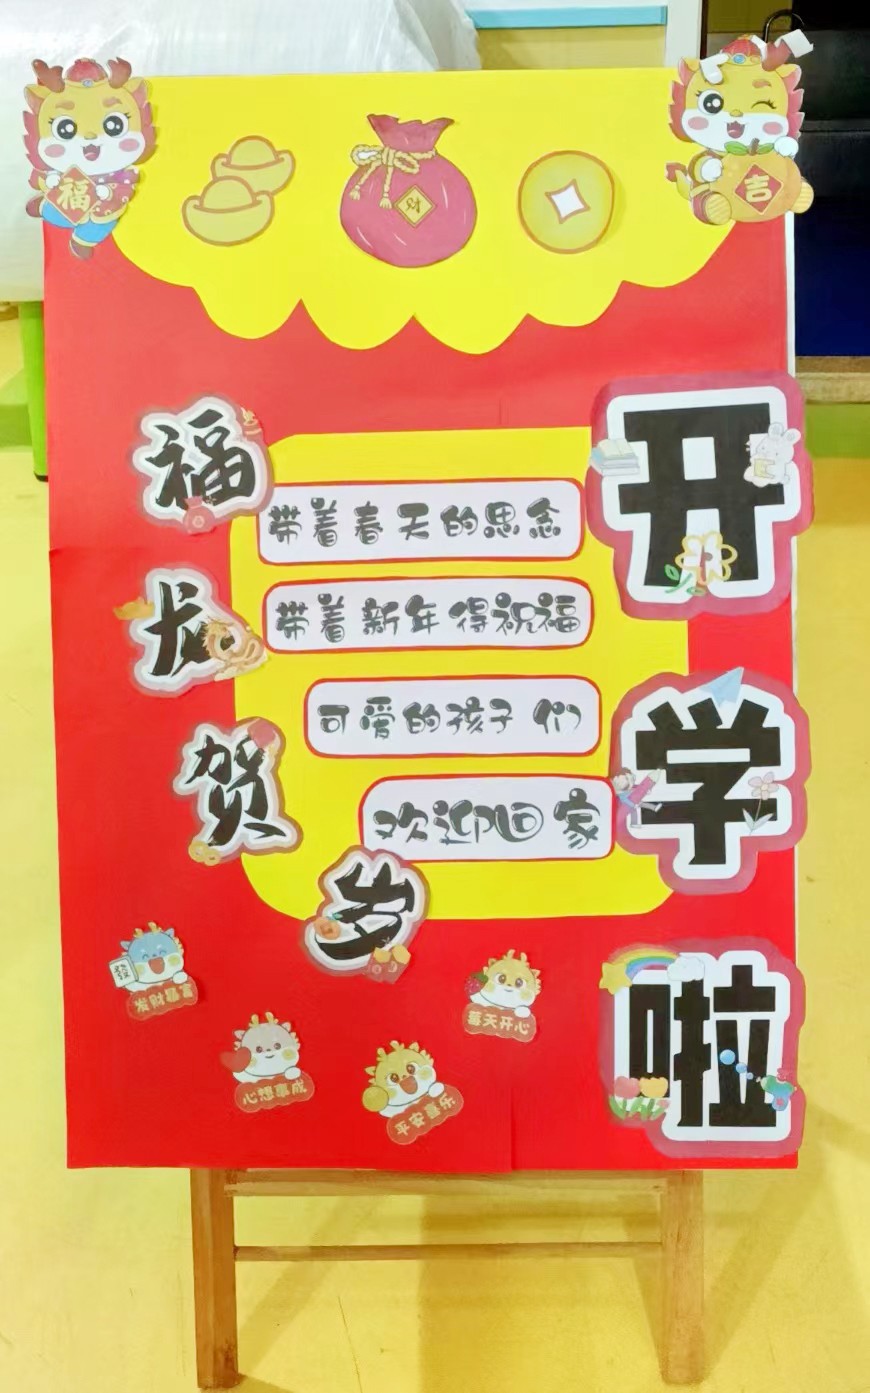 福
吉
财
福龙贺岁
带着春天的思念
带着新年得祝福
可爱的孩子们
欢迎回家
开学啦
發
发财暴富
心想事成
平安喜乐
莓天开心